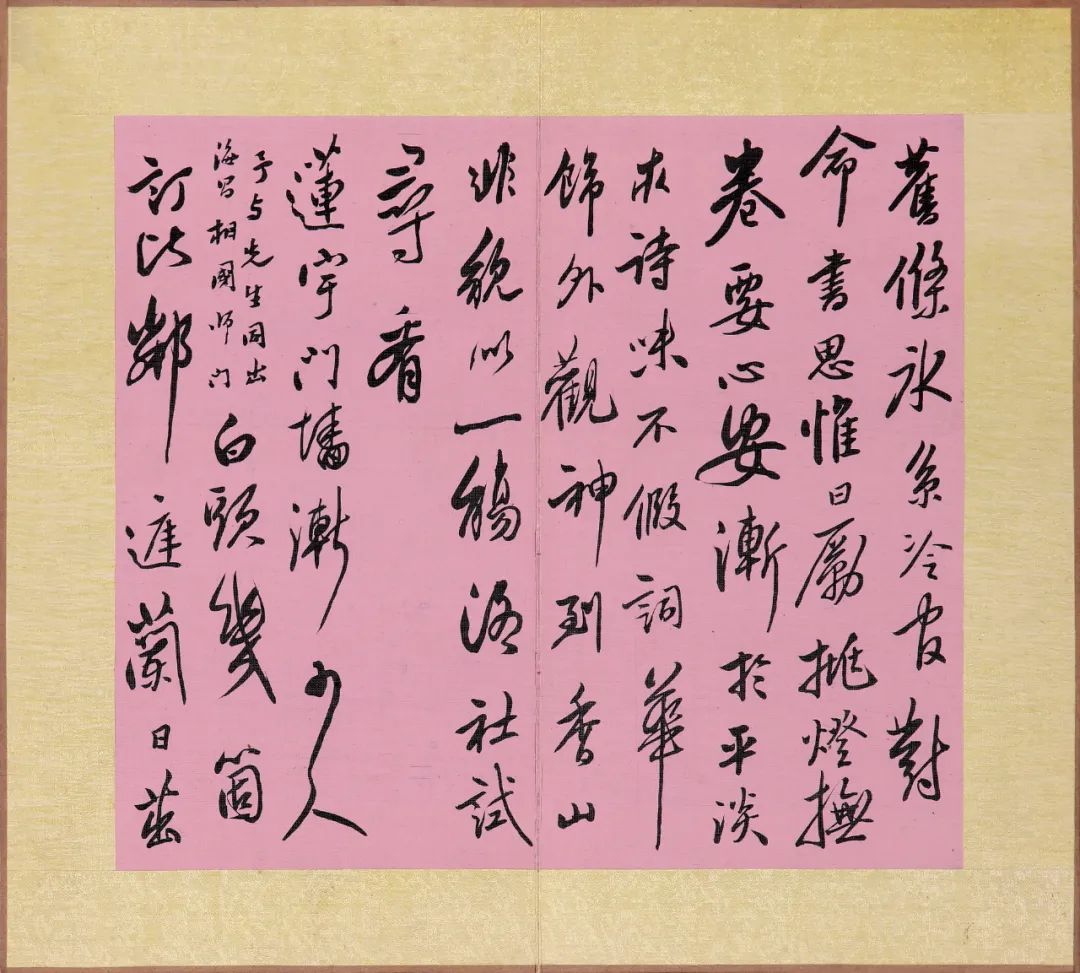 舊條冰系冷官對
命書思惟日勵挑燈撫
卷要心安漸於平淡
求詩味不假詞華
飾外觀神到香山
非貌似一觴洛社試
尋看
蓮宇門墻漸少人
予与先生同出
海昌相國師门
白頭幾箇
訂比鄰庭蘭日茁